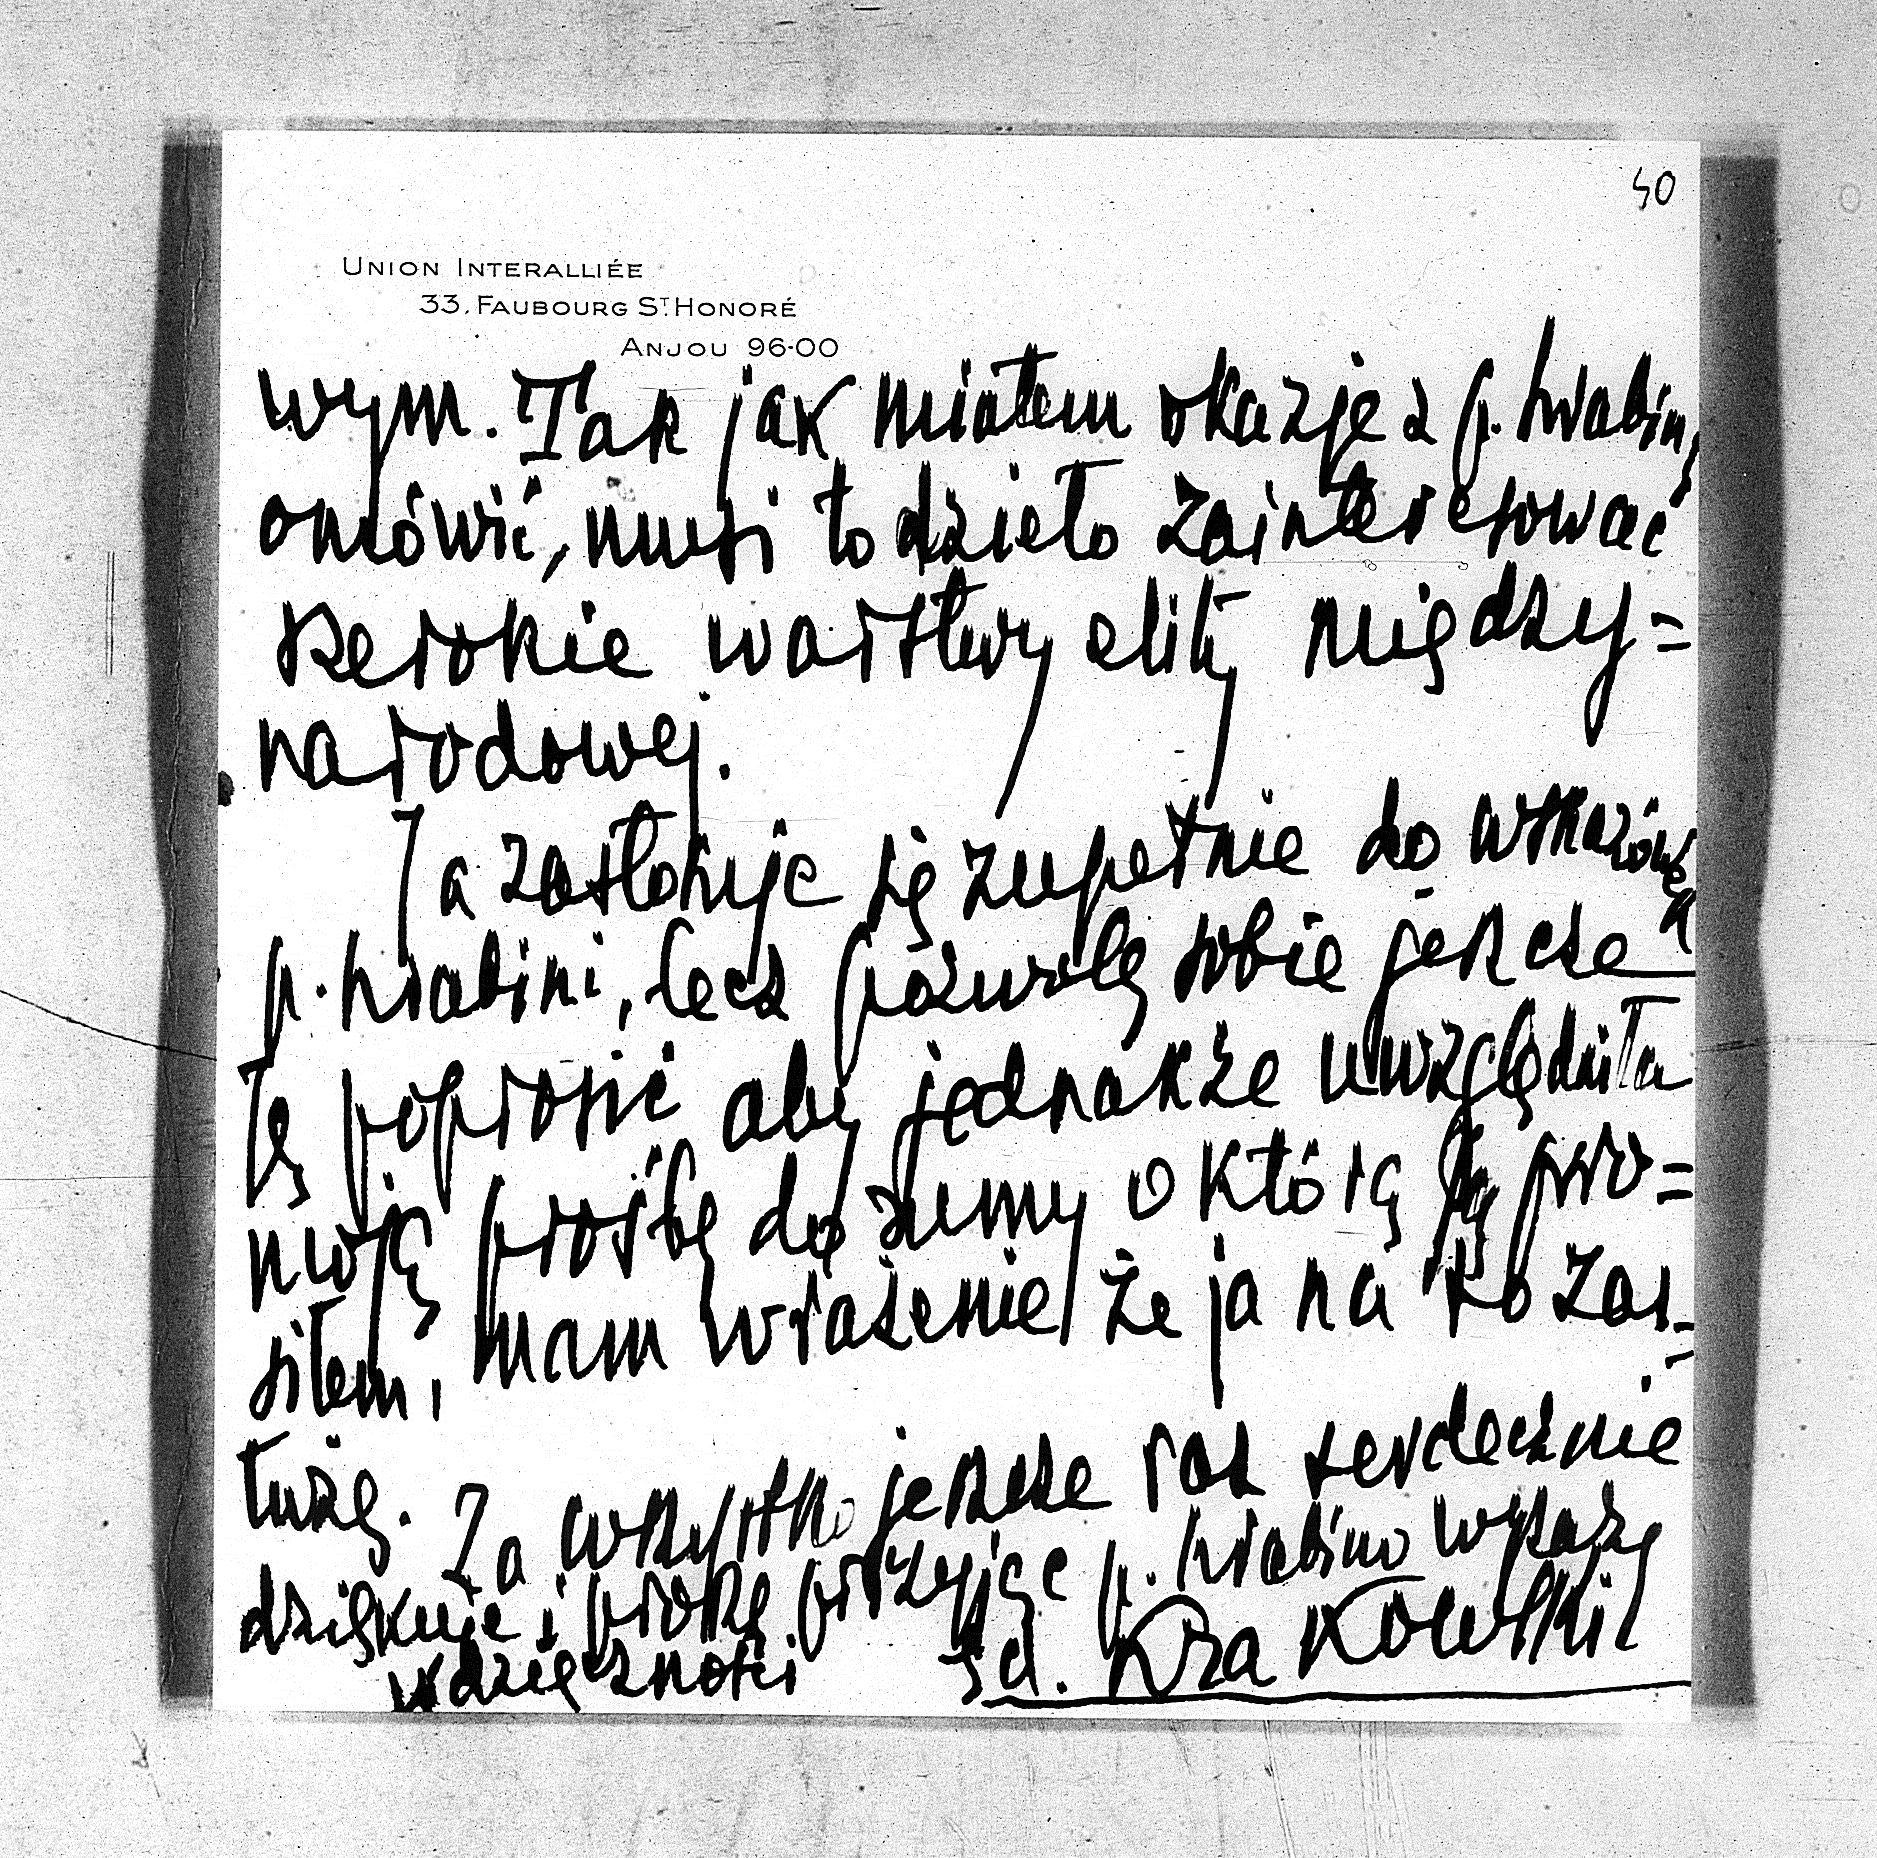 50
UNION INTERALLIÉE
33, FAUBOURG ST. HONORÉ
ANJOU 96-00
wym. Tak jak miałem okazje z p. hrabiną
omówić, musi to dzieło zainteresować
szerokie warstwy elity między=
narodowej.
Ja zastosuje się zupełnie do wskazówek
p. hrabini, lecz pozwolę sobie jeszcze
Ją poprosić aby jednakże uwzględniła
moją prośbę do sumy o którą Ją pro=
siłem, mam wrażenie że ja na to zas=
łużę.
Za wszystko jeszcze raz serdecznie
dziękuje i proszę przyjąć p. hrabino wyrazy
wdzięczności Ed. Krakowski